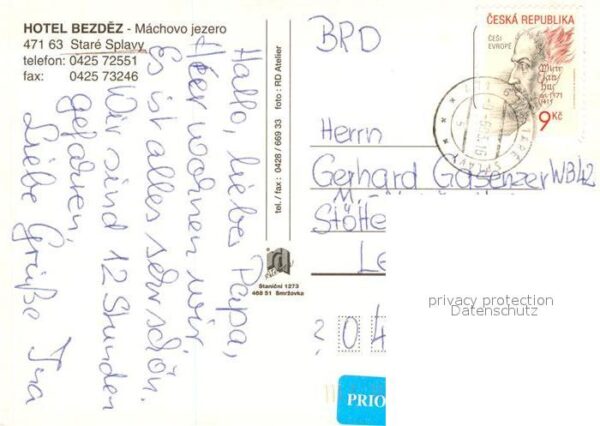 HOTEL BEZDĚZ - Máchovo jezero
471 63 Staré Splavy
telefon: 0425 72551
fax: 0425 73246
Hallo, liebes Papa,
Hier wohnen wir.
Es ist alles sehr schön.
Wir sind 12 Stunden
gefahren,
Liebe Grüße Ina
tel./fax: 0428 / 669 33 foto: RD Atelier
Staniční 1273
468 51 Smržovka
BRD
ČESKÁ REPUBLIKA
ČEŠI
EVROPĚ
Mistr
Jan
Hus
1371
1415
9 Kč
Herrn
Gerhard Gasenzer WB42
Stötte
Le
privacy protection
Datenschutz
? 04
PRIO